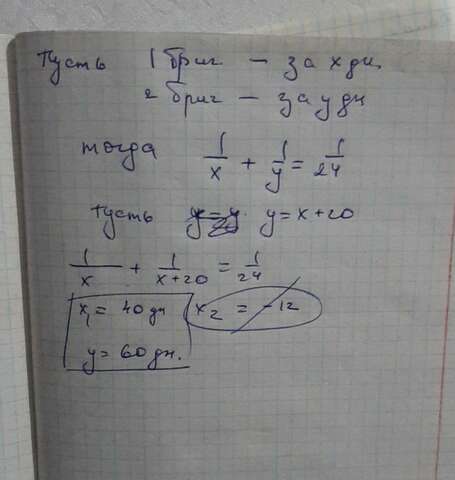 Пусть 1 бриг – за x дн.
2 бриг – за y дн
тогда 1/x + 1/y = 1/24
Пусть y = x+20
1/x + 1/(x+20) = 1/24
x₁ = 40 дн x₂ = –12
y = 60 дн.